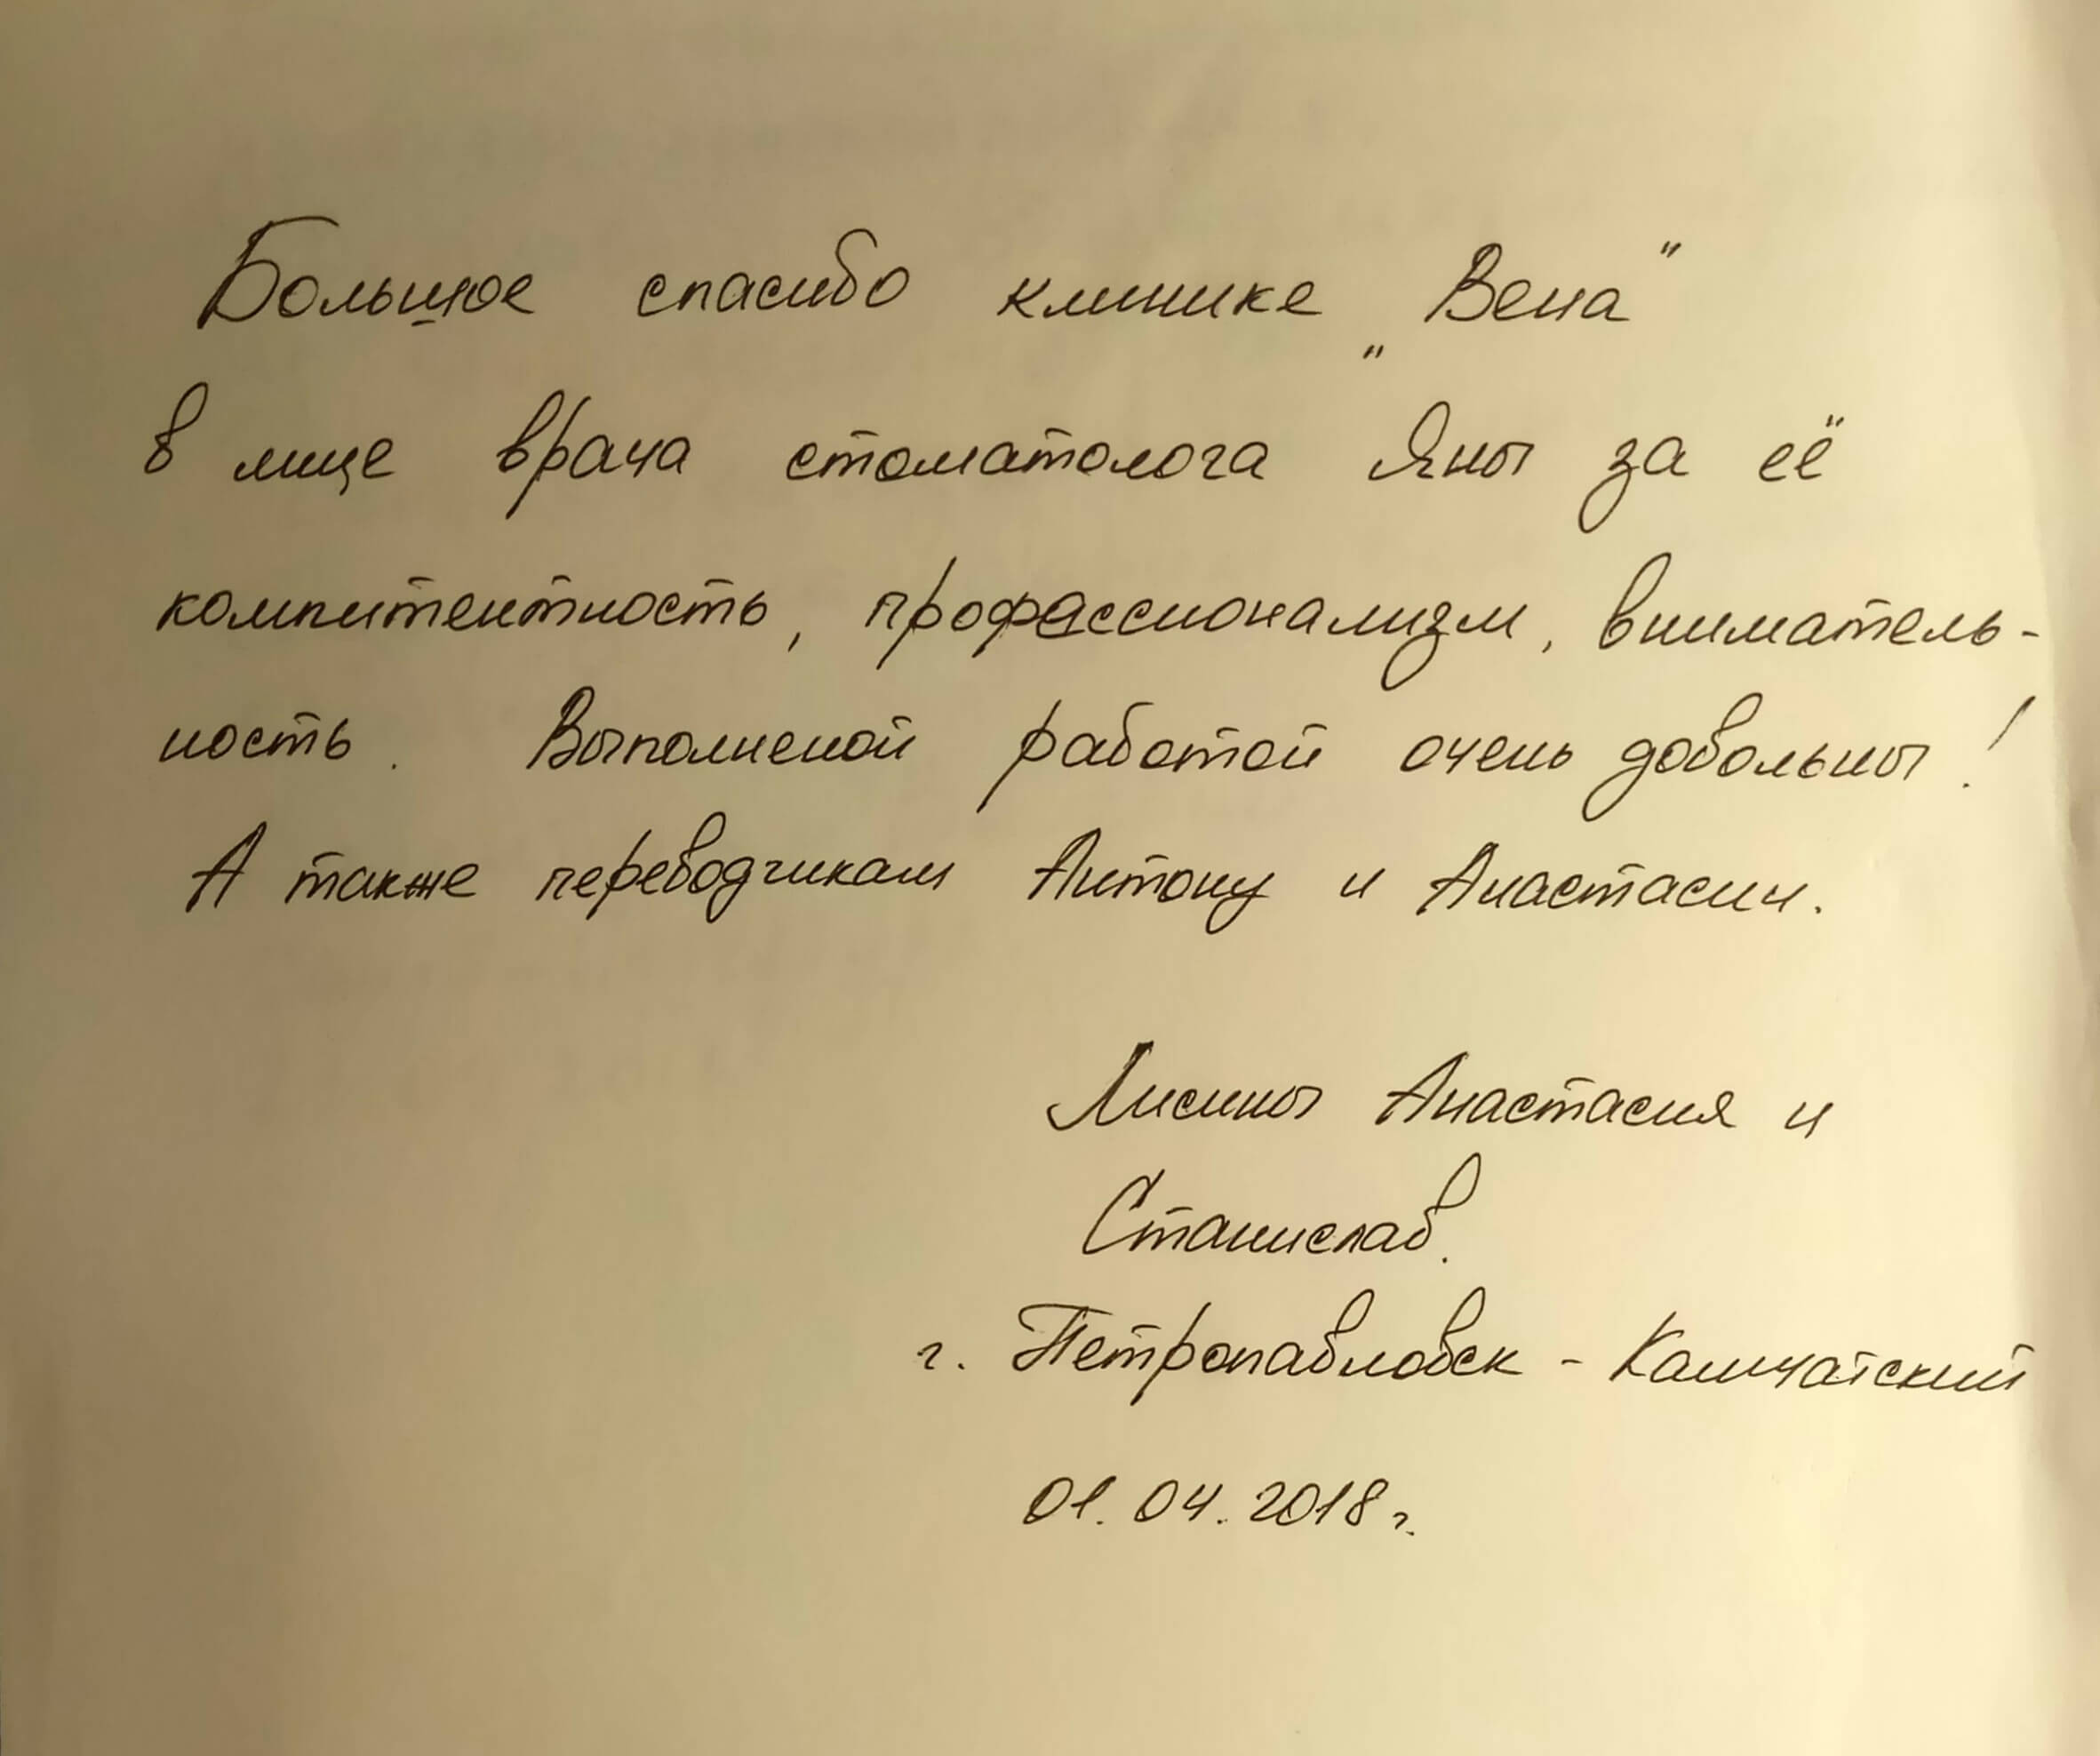 Большое спасибо клинике „Вена"
в лице врача стоматолога Яны за её
компитентность, профессионализм, вниматель-
ность. Выполненой работой очень довольны!
А также переводчикам Антону и Анастасии.
Лисины Анастасия и
Станислав.
г. Петропавловск - Камчатский
01.04.2018 г.